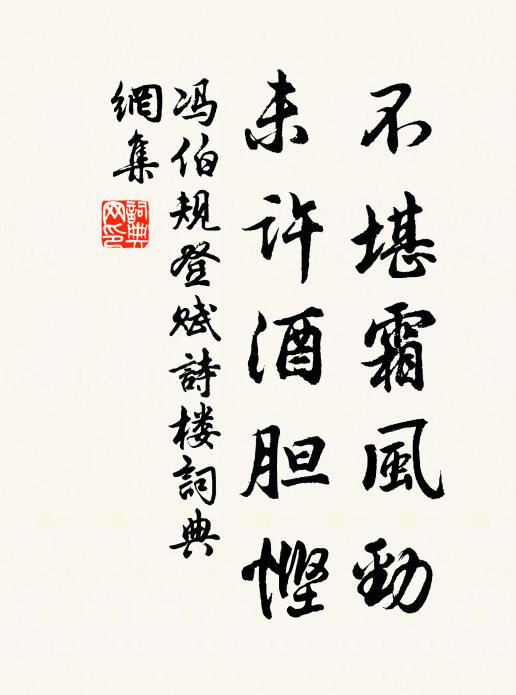 不堪霜風勁
未许酒胆慳
冯伯规登赋詩楼詞典
網集
詞典网印